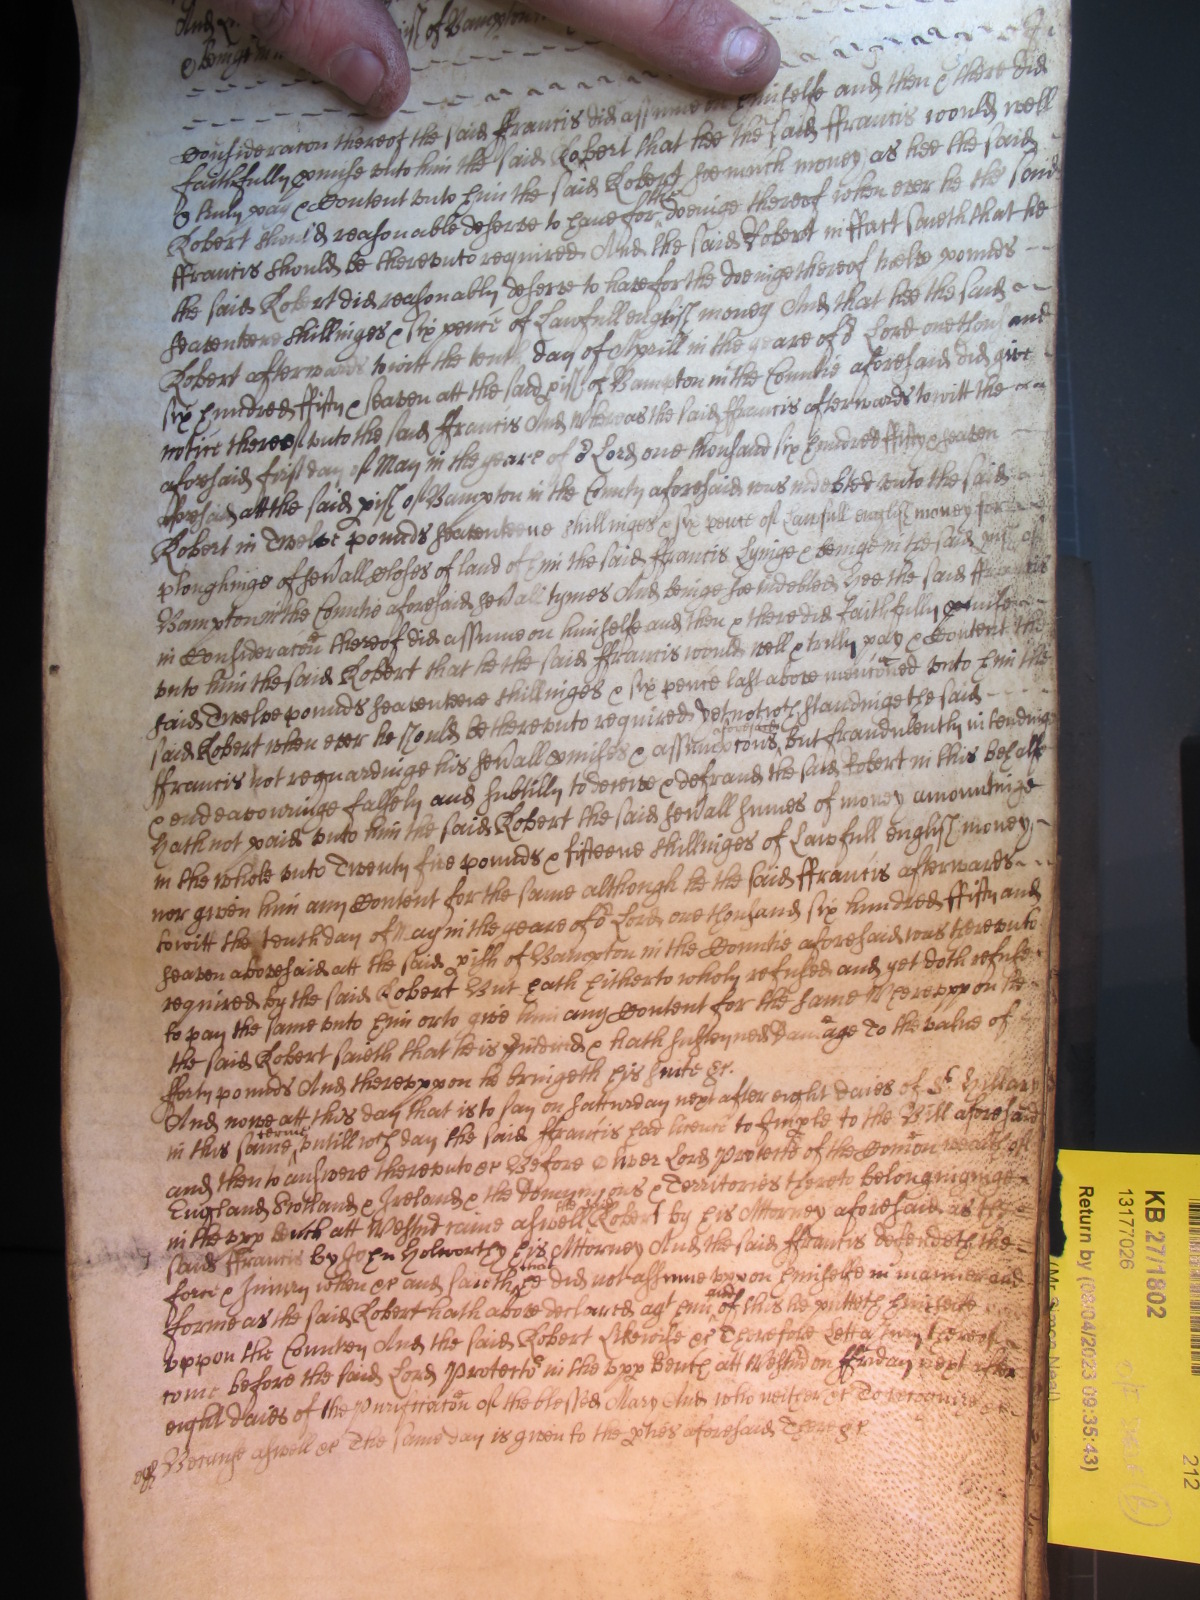 And
pish of Bampton
& beinge in
Consideracon thereof the said Francis did assume on himselfe and then & there did
faithfully pmise unto him the said Robert that hee the said Francis would well
& truly pay & Content unto him the said Robert soe much money as hee the said
Robert should reasonable deserve to have for the doeinge thereof when ever he the said
Francis should be thereunto required And the said Robert in ffact saieth that he
the said Robert did reasonably deserve to have for the doeinge thereof twelve pounds
seaventeene shillinges & six pence of Lawfull english money And that hee the said
Robert afterwards to witt the tenth day of Aprill in the yeare of or Lord one thousand
six hundred ffifty & seaven att the said pish of Bampton in the Countie aforesaid did give
notice thereof unto the said Francis And Whereas the said Francis afterwards to witt the
aforesaid first day of May in the yeare of or Lord one thousand six hundred ffifty & seaven
aforesaid att the said pish of Bampton in the County aforesaid was indebted unto the said
Robert in Twelve pounds seaventeene shillinges & six pence of Lawfull english money for
ploughinge of sevall Closes of land of him the said Francis Lyinge & beinge in the said pish of
Bampton in the Countie aforesaid sevall tymes And beinge soe indebted hee the said Francis
in Consideracon thereof did assume on himselfe and then & there did faithfully pmise
unto him the said Robert that he the said Francis would well & trully pay & Content the
said Twelve pounds seaventeene shillinges & six pence last above mencoed unto him the
said Robert when ever he should be thereunto required Yet notwthstandinge the said
Francis not reguardinge his sevall pmises & assumptons aforesaid but fraudulently intendinge
& endeavouringe falsely and subtilly to deceive & defraud the said Robert in this behalfe
hath not paid unto him the said Robert the said sevall summes of money amountinge
in the whole unto Twenty five pounds & fifteene shillinges of Lawfull english money
nor given him any Content for the same although he the said Francis afterwards
to witt the tenth day of May in the yeare of or Lord one thousand six hundred ffifty and
seaven abovesaid att the said pish of Bampton in the Countie aforesaid was thereunto
required by the said Robert But hath hitherto wholy refused and yet doth refuse
to pay the same unto him or to give him any Content for the same Whereuppon he
the said Robert saieth that he is Iniured & hath susteyned Damage To the value of
fforty pounds And thereuppon he bringeth his suite &c.
And nowe att this day that is to say on Saturday next after eight daies of St Hillary
in this same terme untill wch day the said Francis had licence to Imple to the Bill aforesaid
and then to answere thereunto &c Before Oliver Lord Protector of the Comon wealth of
England Scotland & Ireland & the dominyons & Territories thereto belonginginge
in the upp bench att Westmr came aswell the said Robert by his Attorney aforesaid as the
said Francis by John Holworthy his Attorney And the said Francis defendeth the
force & Iniury when &c and saieth that he did not assume uppon himselfe in manner and
forme as the said Robert hath above declared agt him and of this he putteth himselfe
uppon the Country And the said Robert Likewise &c Therefore Lett a Jury thereof
come before the said Lord Protector in the upp Bench att Westmr on ffriday next after
eight daies of the Purificacon of the blessed Mary And who neither &c To recognize &c
Because aswell &c The same day is given to the pties aforesaid There &c
KB 27/1802
13177026
Return by (08/04/2023 09:35:43)
(Mr Simon Neal)
212